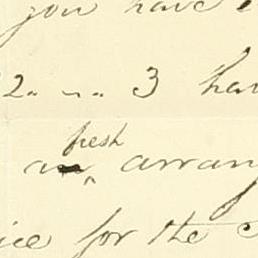 you have
2. " . 3 ha
a fresh arran
ice for the